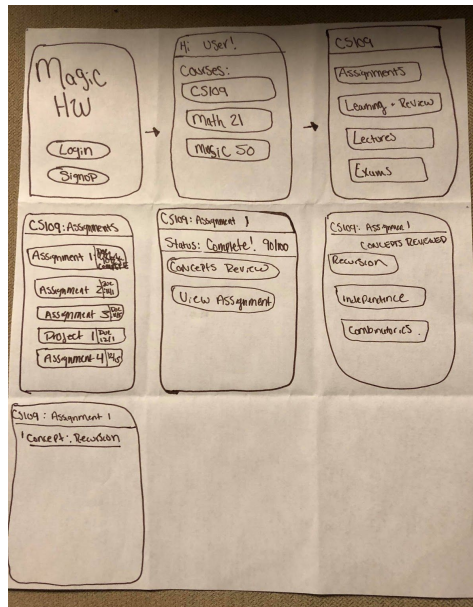 Magic
HW
Login
Signup
Hi User!
Courses:
CS109
Math 21
Magic 50
CS109
Assignments
Learning + Review
Lectures
Exams
CS109: Assignments
Assignment 1
Complete
Assignment 2
Due
Assignment 3
Due
Project 1
Due
12/1
Assignment 4
CS109: Assignment 1
Status: Complete! 90/100
Concepts Review
View Assignment
CS109: Assignment 1
CONCEPTS REVIEWED
Recursion
Independence
Combinatorics
CS109: Assignment 1
Concept: Recursion